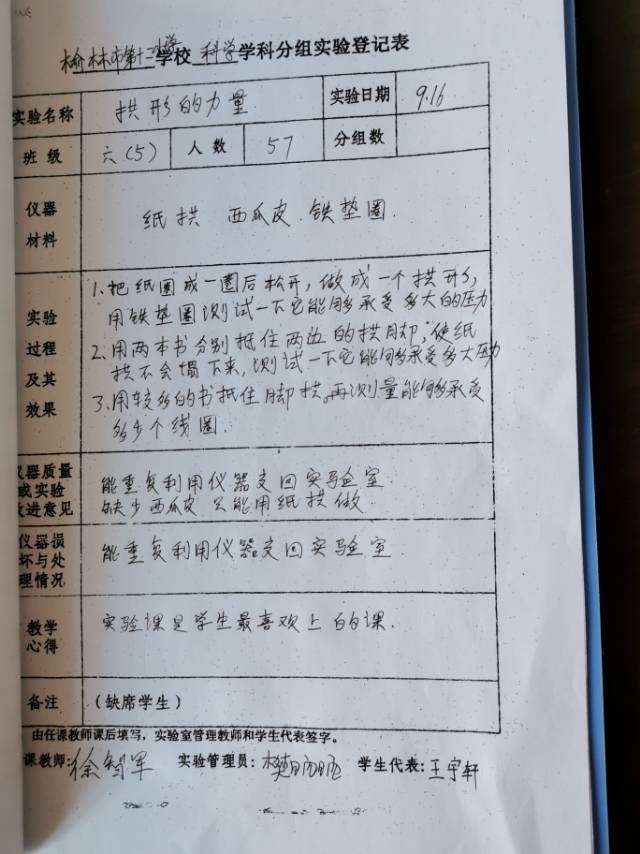 榆林市第十二小学学校 科学学科分组实验登记表
实验名称 拱形的力量 实验日期 9.16
班级 六(5) 人数 57 分组数
仪器材料 纸拱 西瓜皮.铁垫圈.
实验过程及其效果
1.把纸圈成一圈后松开,做成一个拱形,
用铁垫圈测试一下它能够承受多大的压力
2.用两本书分别抵住两边的拱脚,使纸
拱不会塌下来,测试一下它能够承受多大压力
3.用较多的书抵住脚拱,再测量能够承受
多少个线圈.
仪器质量或实验改进意见
能重复利用仪器交回实验室
缺少西瓜皮 只能用纸拱做.
仪器损坏与处理情况
能重复利用仪器交回实验室.
教学心得 实验课是学生最喜欢上的课.
备注 (缺席学生)
由任课教师课后填写,实验室管理教师和学生代表签字。
课教师:徐智军 实验管理员:樊 学生代表:王宇轩